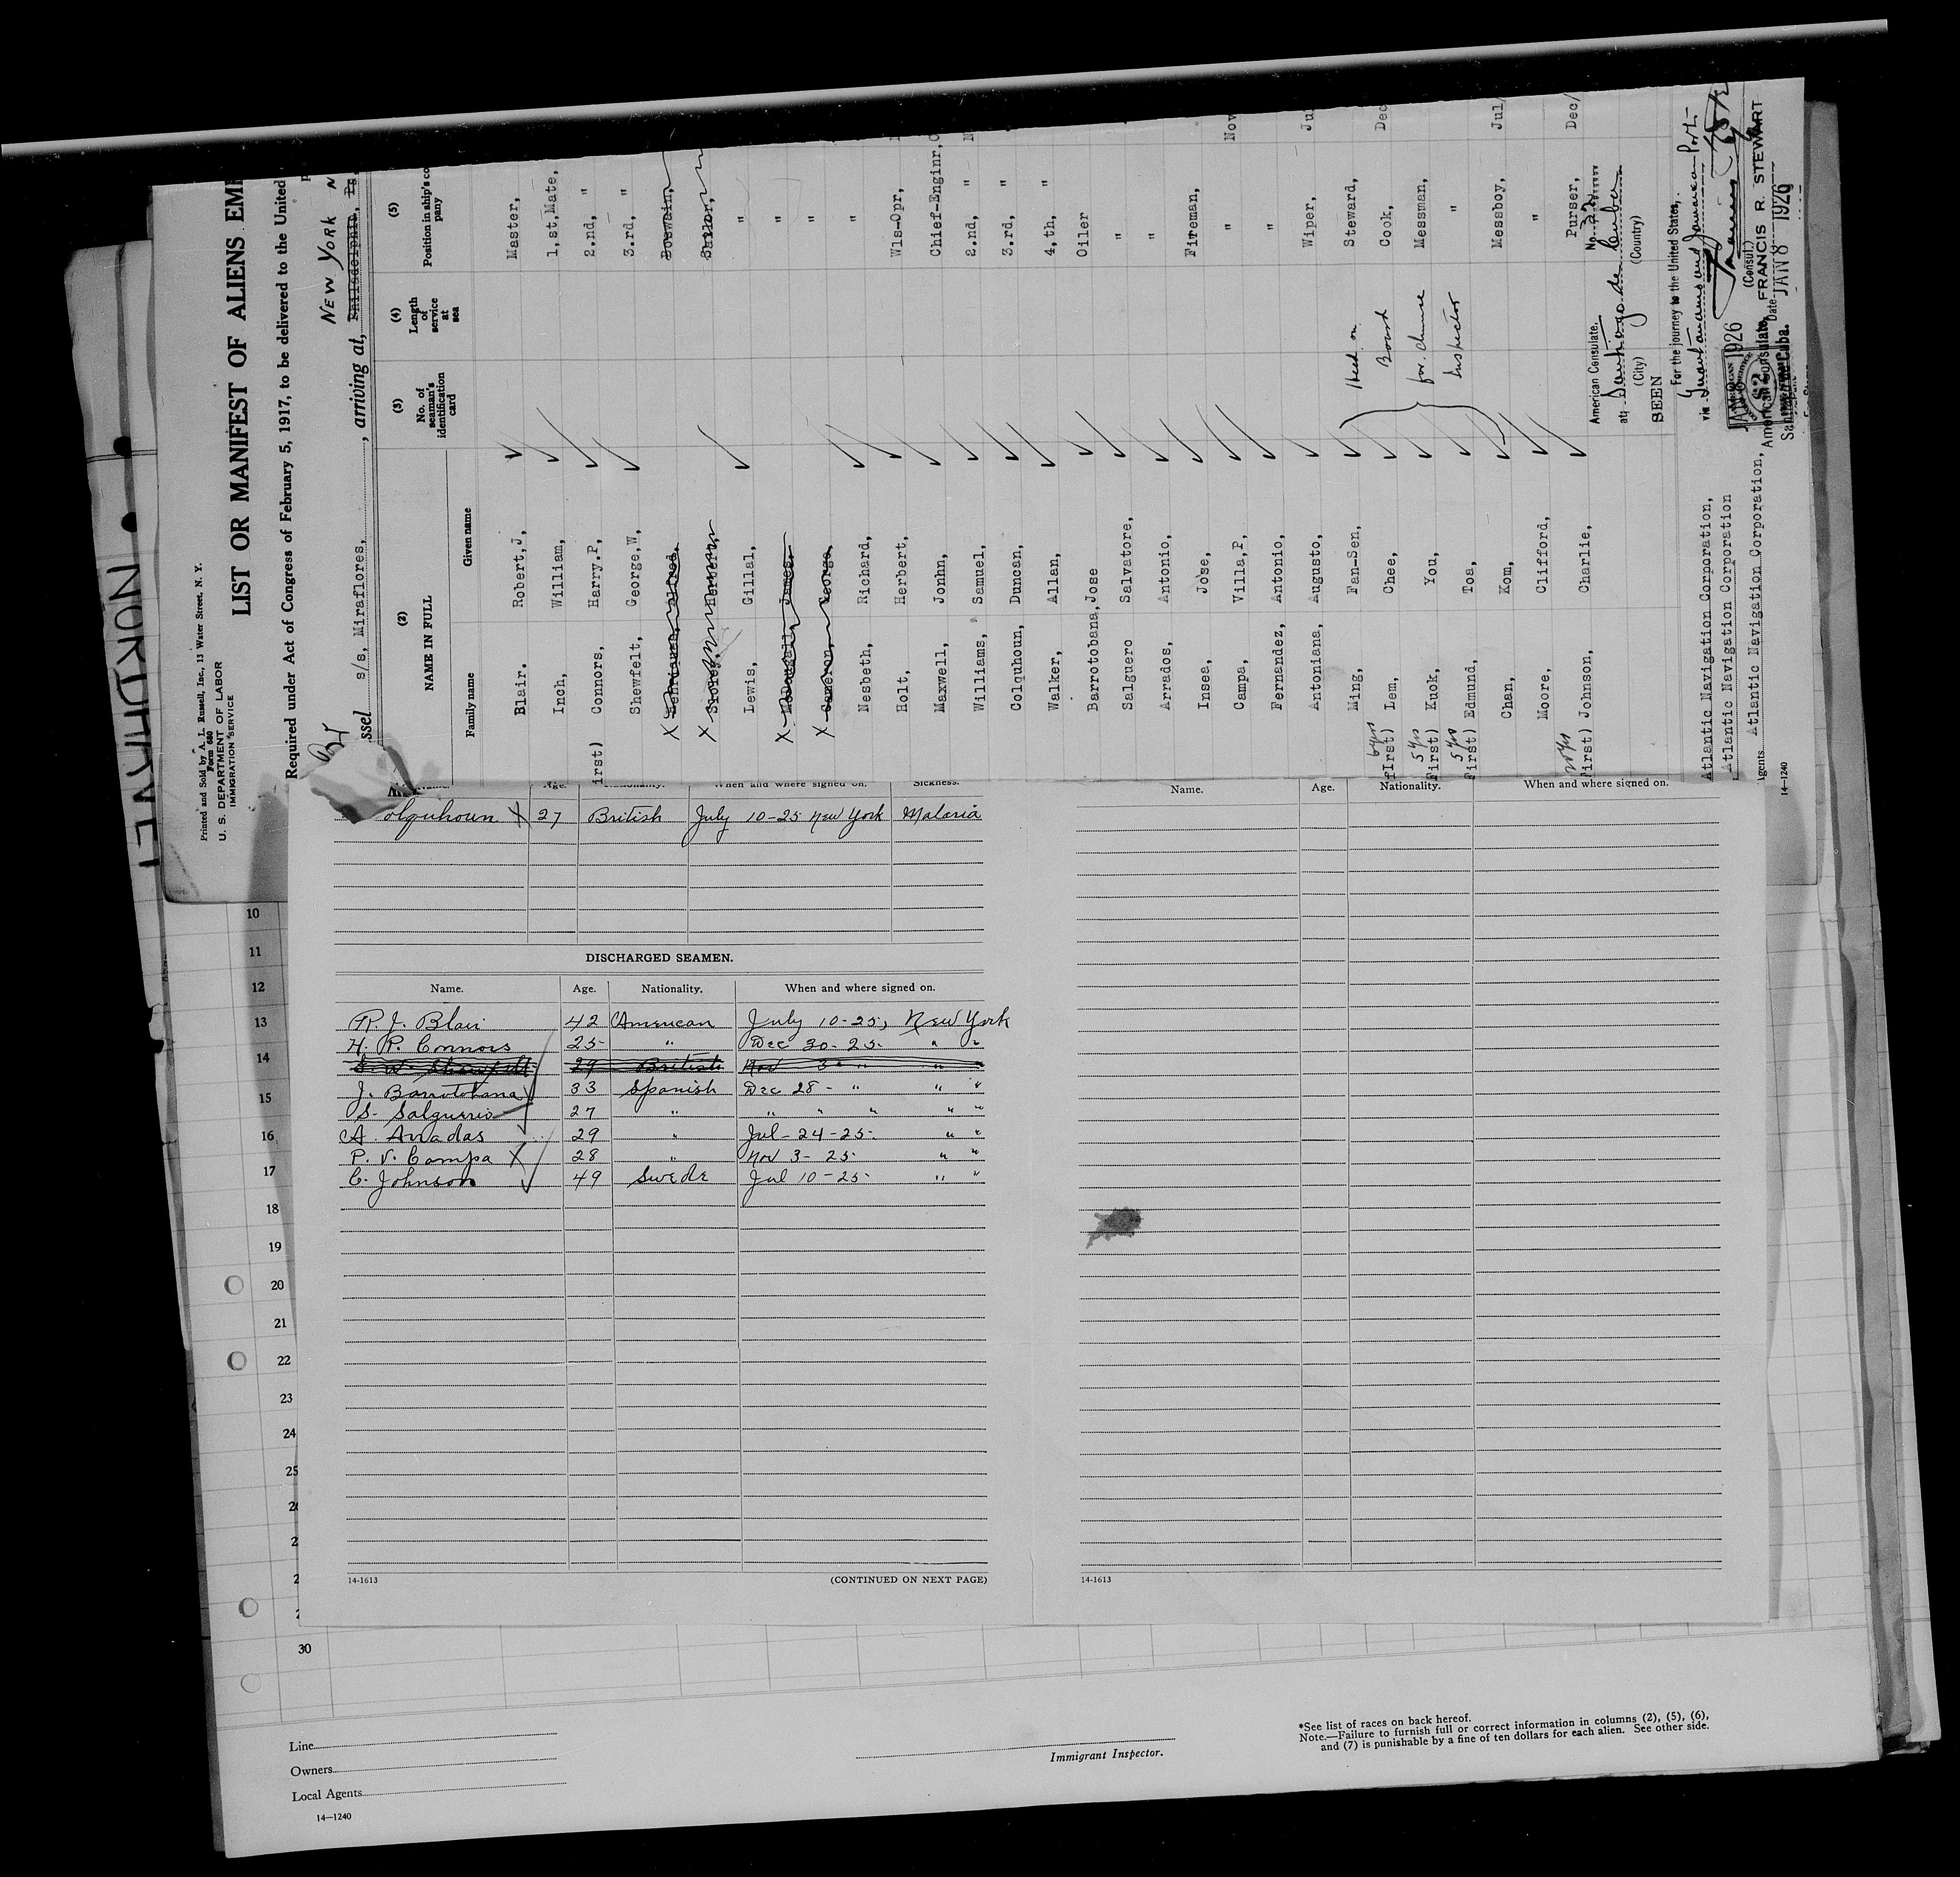 Printed and Sold by A. L. Russell, Inc., 13 Water Street, N. Y.
Form 680
U. S. DEPARTMENT OF LABOR
IMMIGRATION SERVICE
LIST OR MANIFEST OF ALIENS EM
Required under Act of Congress of February 5, 1917, to be delivered to the United
NEW YORK N
Br
ssel s/s, Miraflores, , arriving at, Philadelphia, Pa,
(2) (3) (4) (5)
NAME IN FULL No. of seaman's identification card Length of service at sea Position in ship's co pany
Family name Given name
Blair. Robert,J, Master,
Inch, William, 1,st,Mate,
irst) Connors, Harry.P, 2.nd, "
Shewfelt, George,W, 3.rd, "
X Boswain,
X Sailor,
Lewis, Gillal, "
X McDougall, James, "
X Cameron, George, "
Nesbeth, Richard, "
Holt, Herbert, Wls-Opr,
Maxwell, Jonhn, Chief-Enginr,
Williams, Samuel, 2.nd, " N
Colquhoun, Duncan, 3.rd, "
Walker, Allan, 4,th, "
Barrotobana,Jose Oiler
Salguero Salvatore, "
Arrados, Antonio, "
Insea, Jo'se, Fireman,
Campa, Villa,P, " Nov
Fernendez, Antonio, "
Antoniana, Augusto, Wiper, Ju
Ming, Fan-Sen, Steward,
6 yrs
First) Lem, Chee, Cook, Dec
5 yrs
First) Kuok, You, Messman,
5 yrs
First) Edmund, Toa, "
Chan, Kom, Messboy, Jul/
Moore, Clifford, "
First) Johnson, Charlie, Purser, Dec/
Held on
Board
for chinese
Inspector
American Consulate. No. 32
at Santiago de Cuba
(City) (Country)
SEEN
For the journey to the United States,
via Guantanamo and Jamaica Ports
JAN 8 1926
(Consul.)
American Consulate, FRANCIS R. STEWART
Santiago de Cuba. Date JAN 8 1926
Atlantic Navigation Corporation,
Atlantic Navigation Corporation
Agents Atlantic Navigation Corporation,
14-1240
NORDHAVET
Age. Nationality. When and where signed on. Sickness.
olquhoun X 27 British July 10-25 New York Malaria
DISCHARGED SEAMEN.
Name. Age. Nationality. When and where signed on.
R. J. Blair 42 American July 10-25, New York
H. P. Connors 25 " Dec 30-25 " "
G. W. Shewfelt 29 British Nov 3 " " "
J. Barrotobana 33 Spanish Dec 28 - " " "
S. Salguerio 27 " " " " " "
A. Anadas 29 " Jul-24-25- " "
P. V. Campa X 28 " Nov 3-25 " "
C. Johnson 49 Swede Jul 10-25 " "
14-1613 (CONTINUED ON NEXT PAGE)
Name. Age. Nationality. When and where signed on.
14-1613
10
11
12
13
14
15
16
17
18
19
20
21
22
23
24
25
30
Line
Owners
Local Agents
14—1240
Immigrant Inspector.
*See list of races on back hereof.
Note.—Failure to furnish full or correct information in columns (2), (5), (6),
and (7) is punishable by a fine of ten dollars for each alien. See other side.